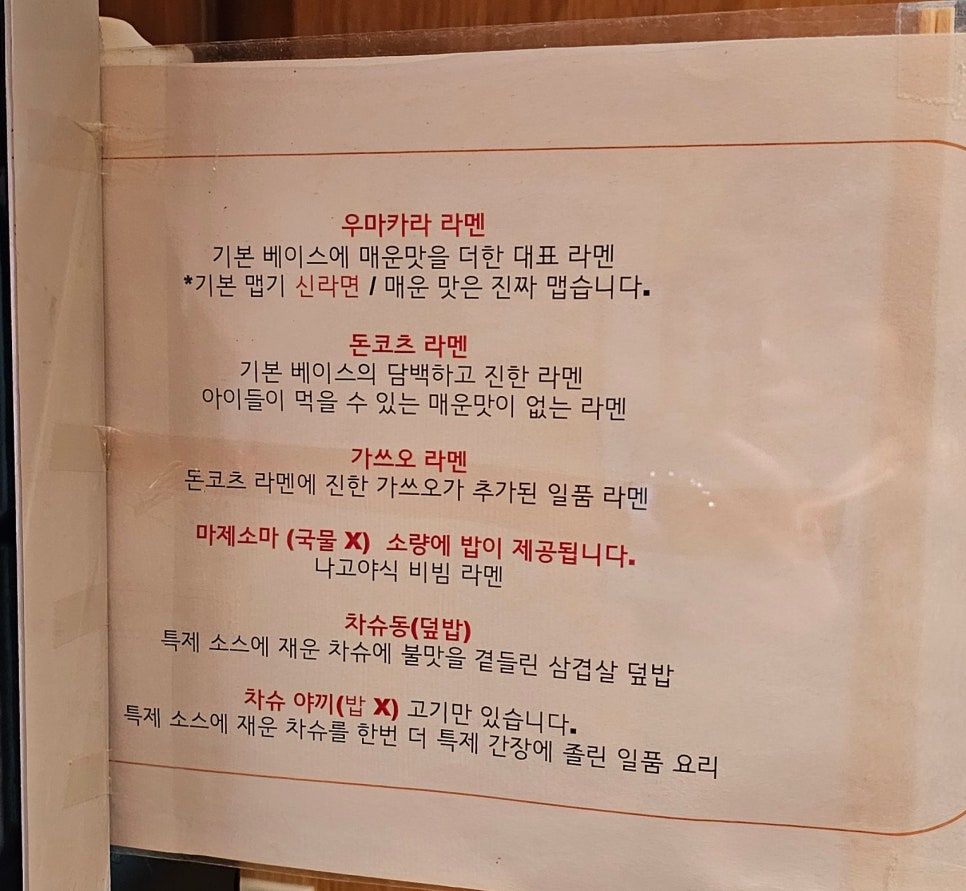 우마카라 라멘
기본 베이스에 매운맛을 더한 대표 라멘
*기본 맵기 신라면 / 매운 맛은 진짜 맵습니다.
돈코츠 라멘
기본 베이스의 담백하고 진한 라멘
아이들이 먹을 수 있는 매운맛이 없는 라멘
가쓰오 라멘
돈코츠 라멘에 진한 가쓰오가 추가된 일품 라멘
마제소마 (국물 X) 소량에 밥이 제공됩니다.
나고야식 비빔 라멘
차슈동(덮밥)
특제 소스에 재운 차슈에 불맛을 곁들린 삼겹살 덮밥
차슈 야끼(밥 X) 고기만 있습니다.
특제 소스에 재운 차슈를 한번 더 특제 간장에 졸린 일품 요리